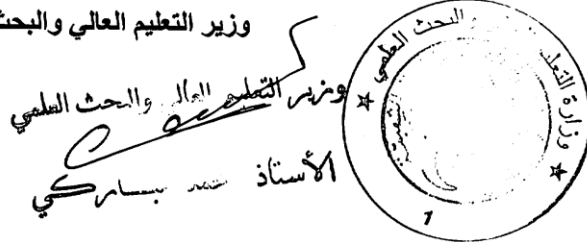 وزير التعليم العالي والبحث
وزير التعليم العالي والبحث العلمي
الأستاذ
وزارة التعليم
البحث العلمي
1